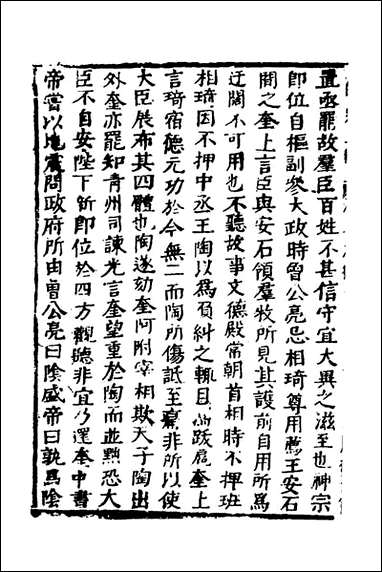 置亟罷故羣臣百姓不甚信守宜大異之滋至也神宗
即位自樞副參大政時曾公亮忌相琦尊用薦王安石
間之奎上言臣與安石領羣牧所見其護前自用所爲
迂闊不可用也不聽故事文德殿常朝首相時不押班
相琦因不押中丞王陶以爲負糾之輒目爲跋扈奎上
言琦宿德元功於今無二而陶所傷詆至毫非所以使
大臣展布其四體也陶遂劾奎阿附宰相欺天子陶出
外奎亦罷知青州司諫光言奎望重於陶而並黜恐大
臣不自安陛下新即位於四方觀聽非宜乃還奎中書
帝嘗以地震問政府所由曾公亮曰陰盛帝曰孰爲陰